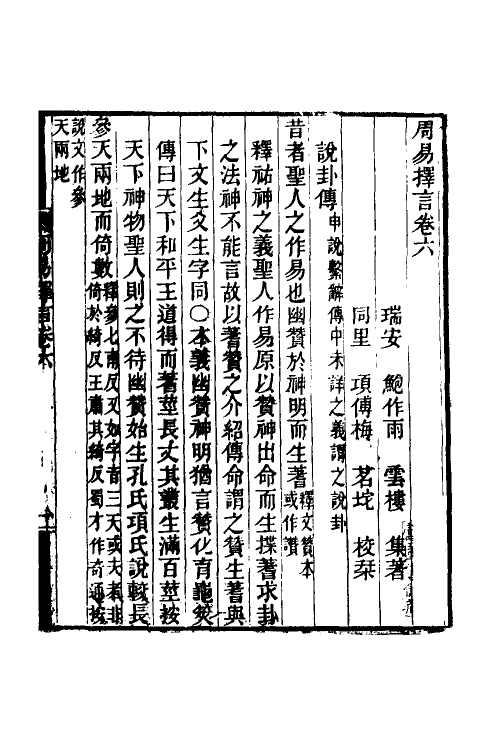 周易擇言卷六
瑞安　鮑作雨　雲樓　集著
同里　項傅梅　茗垞　校栞
說卦傳申說繫辭傳中未詳之義謂之說卦
昔者聖人之作易也幽贊於神明而生蓍釋文贊本或作讚
釋祐神之義聖人作易原以贊神出命而生揲蓍求卦
之法神不能言故以蓍贊之介紹傳命謂之贊生蓍與
下文生爻生字同〇本義幽贊神明猶言贊化育龜筴
傳曰天下和平王道得而蓍莖長丈其叢生滿百莖按
天下神物聖人則之不待幽贊始生孔氏項氏說較長
參天兩地而倚數釋參七南反又如字音三天或夫者非倚於綺反王肅其綺反蜀才作奇通按
說文作參天兩地
周易擇言卷六